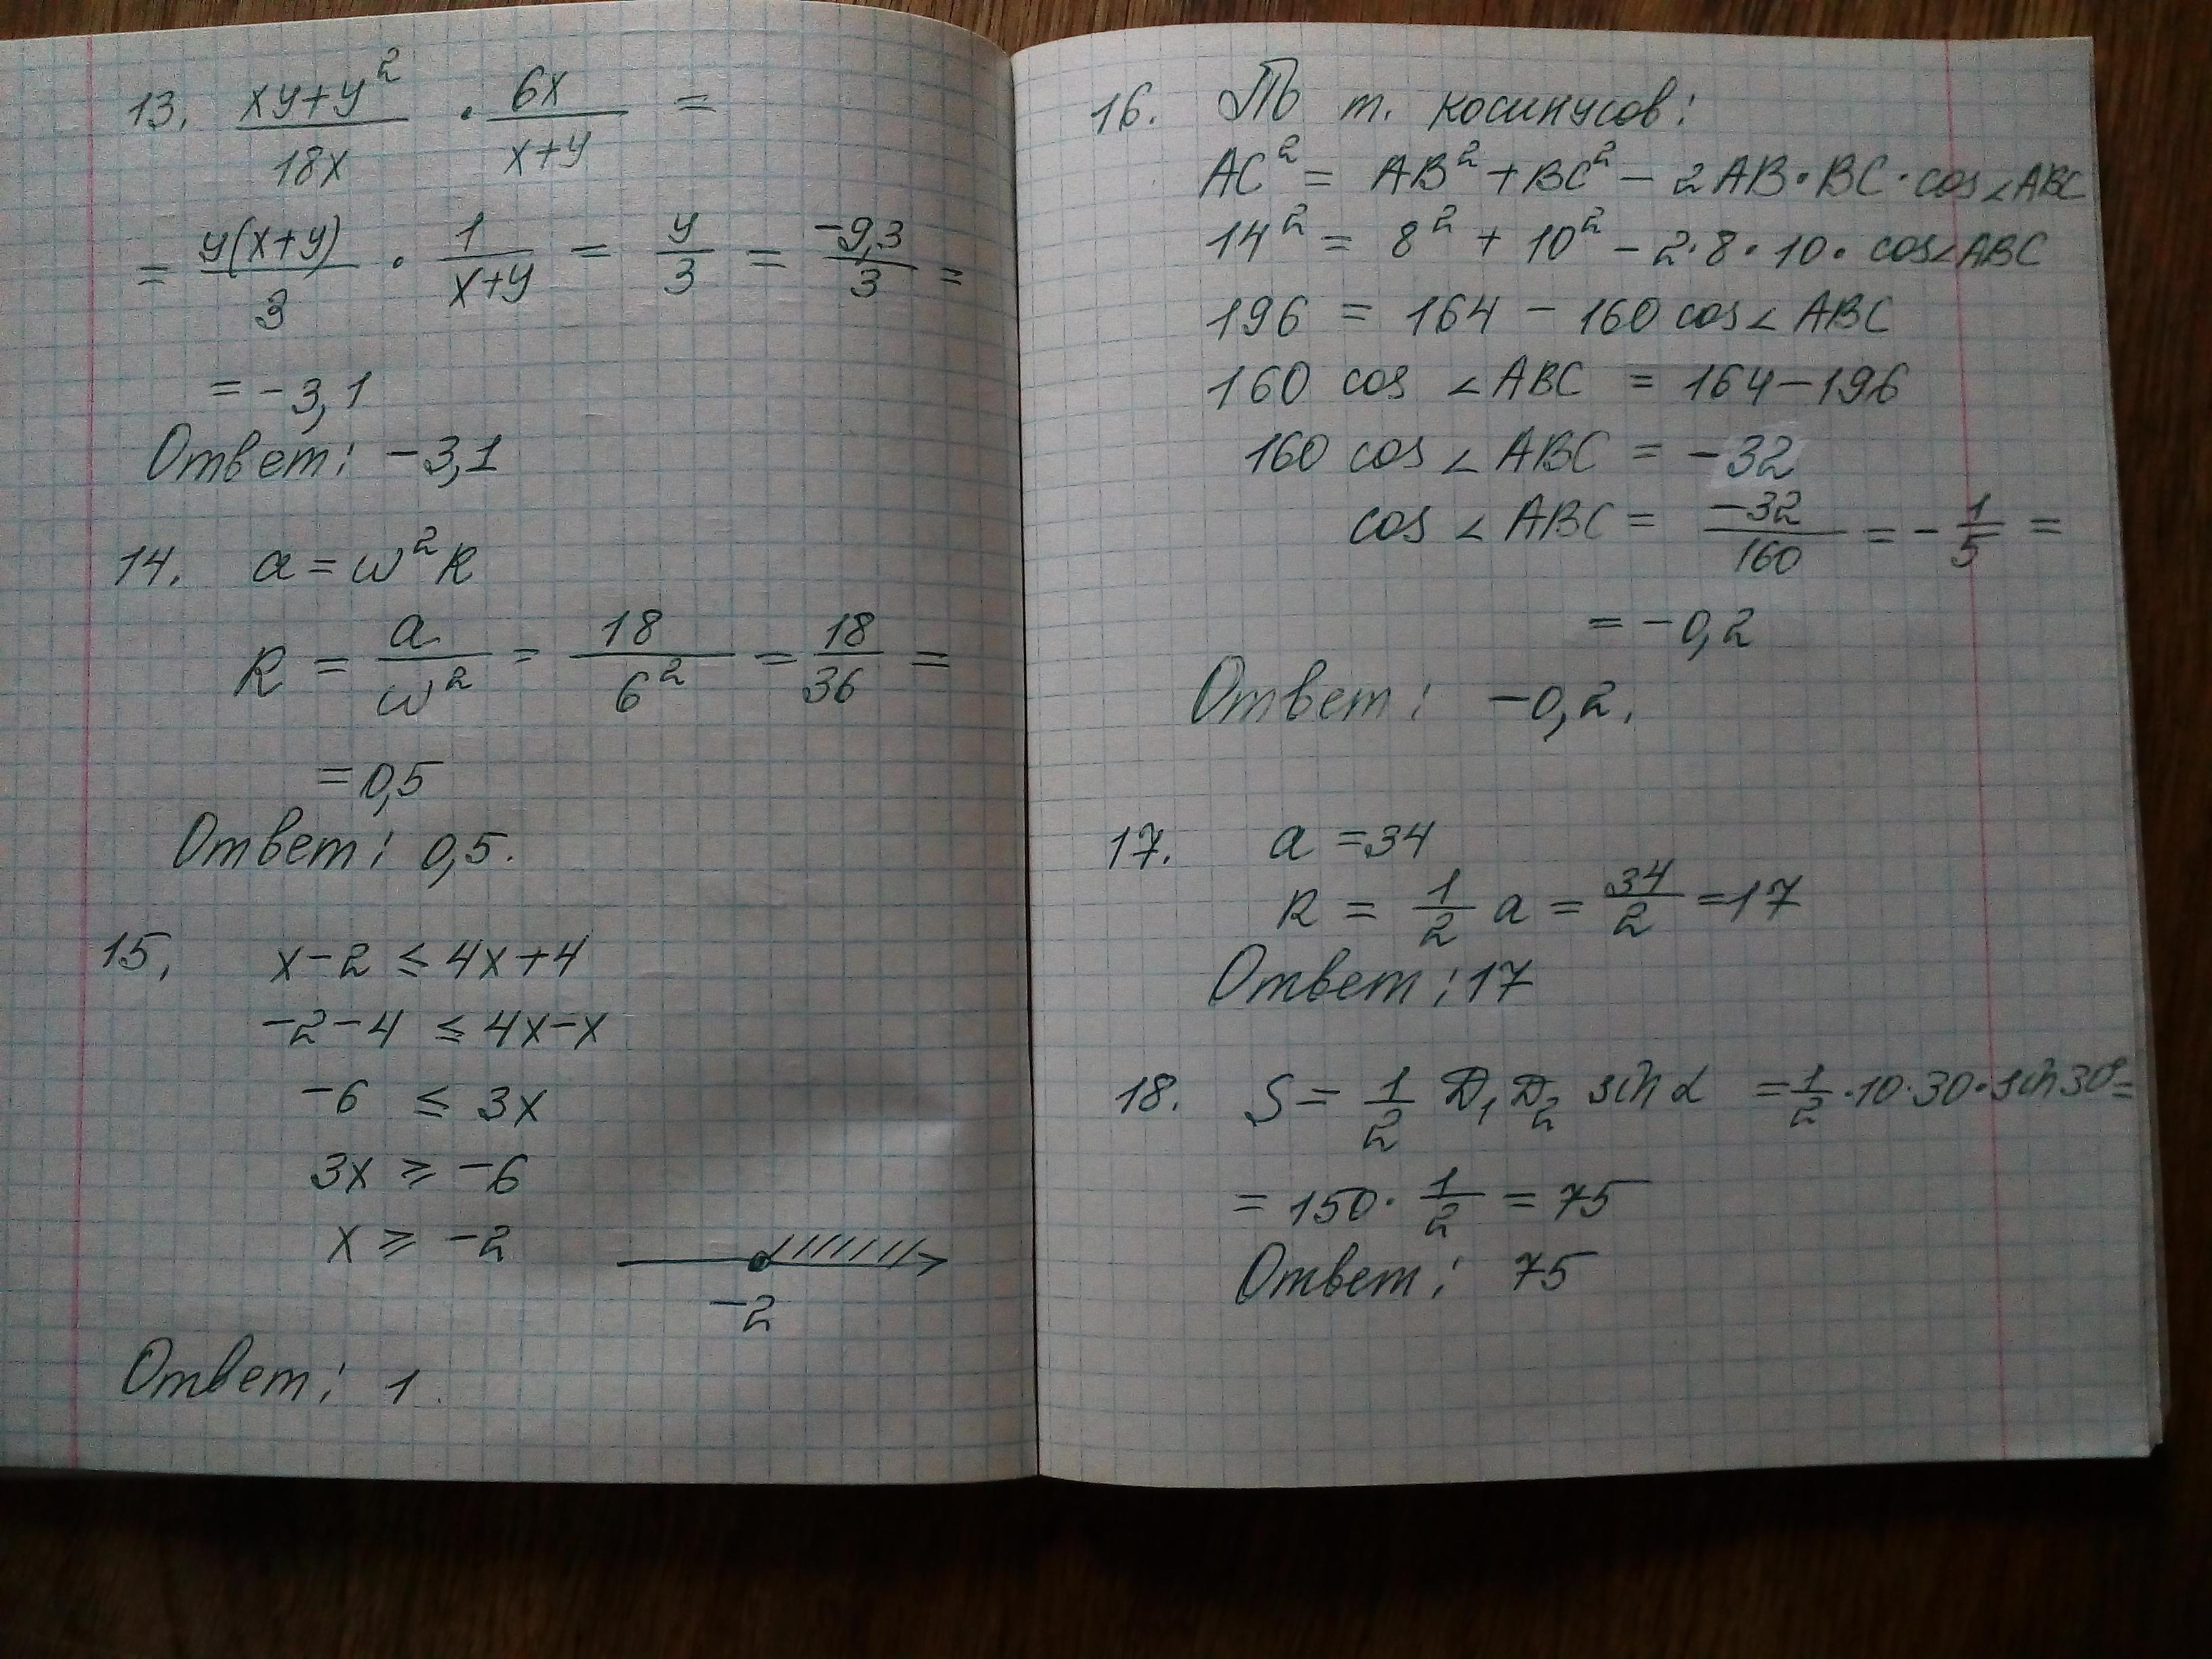 13. (xy+y²)/18x · 6x/(x+y) =
= y(x+y)/3 · 1/(x+y) = y/3 = -9,3/3 =
= -3,1
Ответ: -3,1
14. a = ω²R
R = a/ω² = 18/6² = 18/36 =
= 0,5
Ответ: 0,5.
15. x-2 ≤ 4x+4
-2-4 ≤ 4x-x
-6 ≤ 3x
3x ≥ -6
x ≥ -2
-2
Ответ: 1.
16. По т. косинусов:
AC² = AB² + BC² - 2AB·BC·cos∠ABC
14² = 8² + 10² - 2·8·10·cos∠ABC
196 = 164 - 160 cos∠ABC
160 cos ∠ABC = 164-196
160 cos ∠ABC = -32
cos ∠ABC = -32/160 = -1/5 =
= -0,2
Ответ: -0,2.
17. a = 34
R = 1/2 a = 34/2 = 17
Ответ: 17
18. S = 1/2 D₁D₂ sin α = 1/2·10·30·sin30°=
= 150·1/2 = 75
Ответ: 75